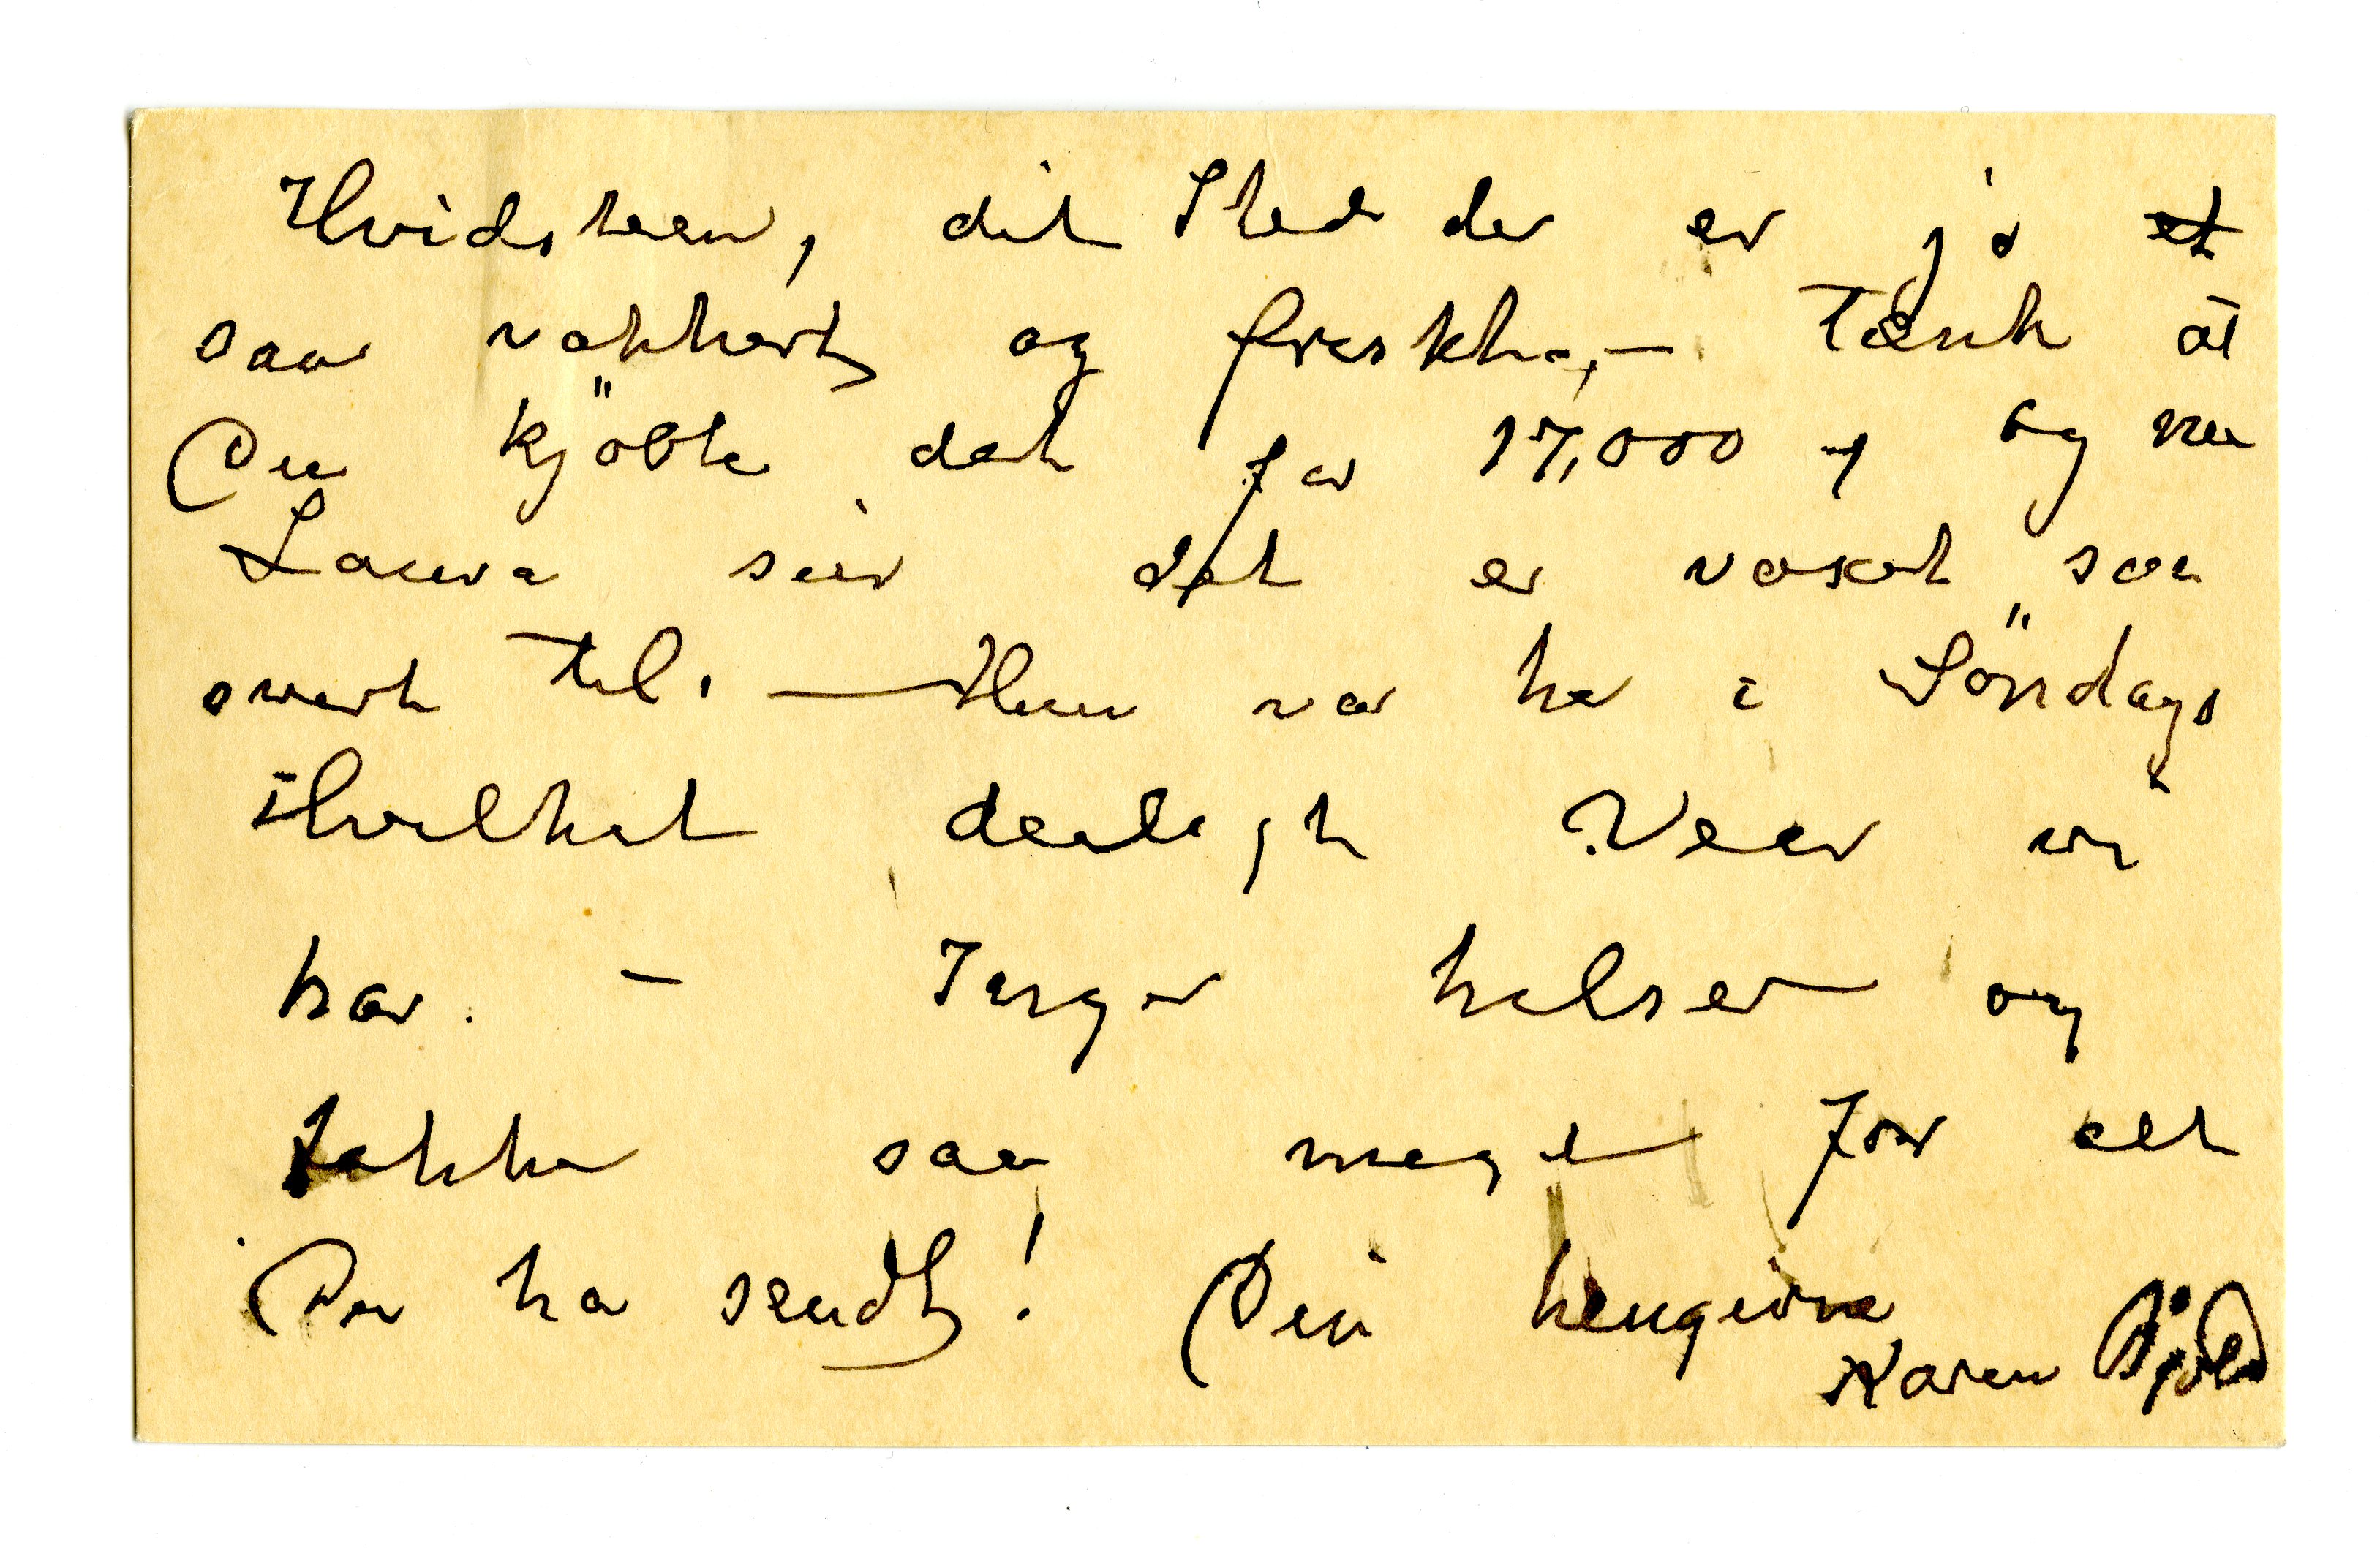 Hvidsteen, dit Sted der er jo et
saa vakkert og friskt, – Tænk at
Du kjöbte det for 17,000 og nu
Laura siir det er voxet saa
svert til. — Hun var her i Söndags
ihvilket deiligt Veer vi
har. – Inger hilser og
takker saa meget for alt
Du har sendt! Din hengivne
Karen Bjølstad